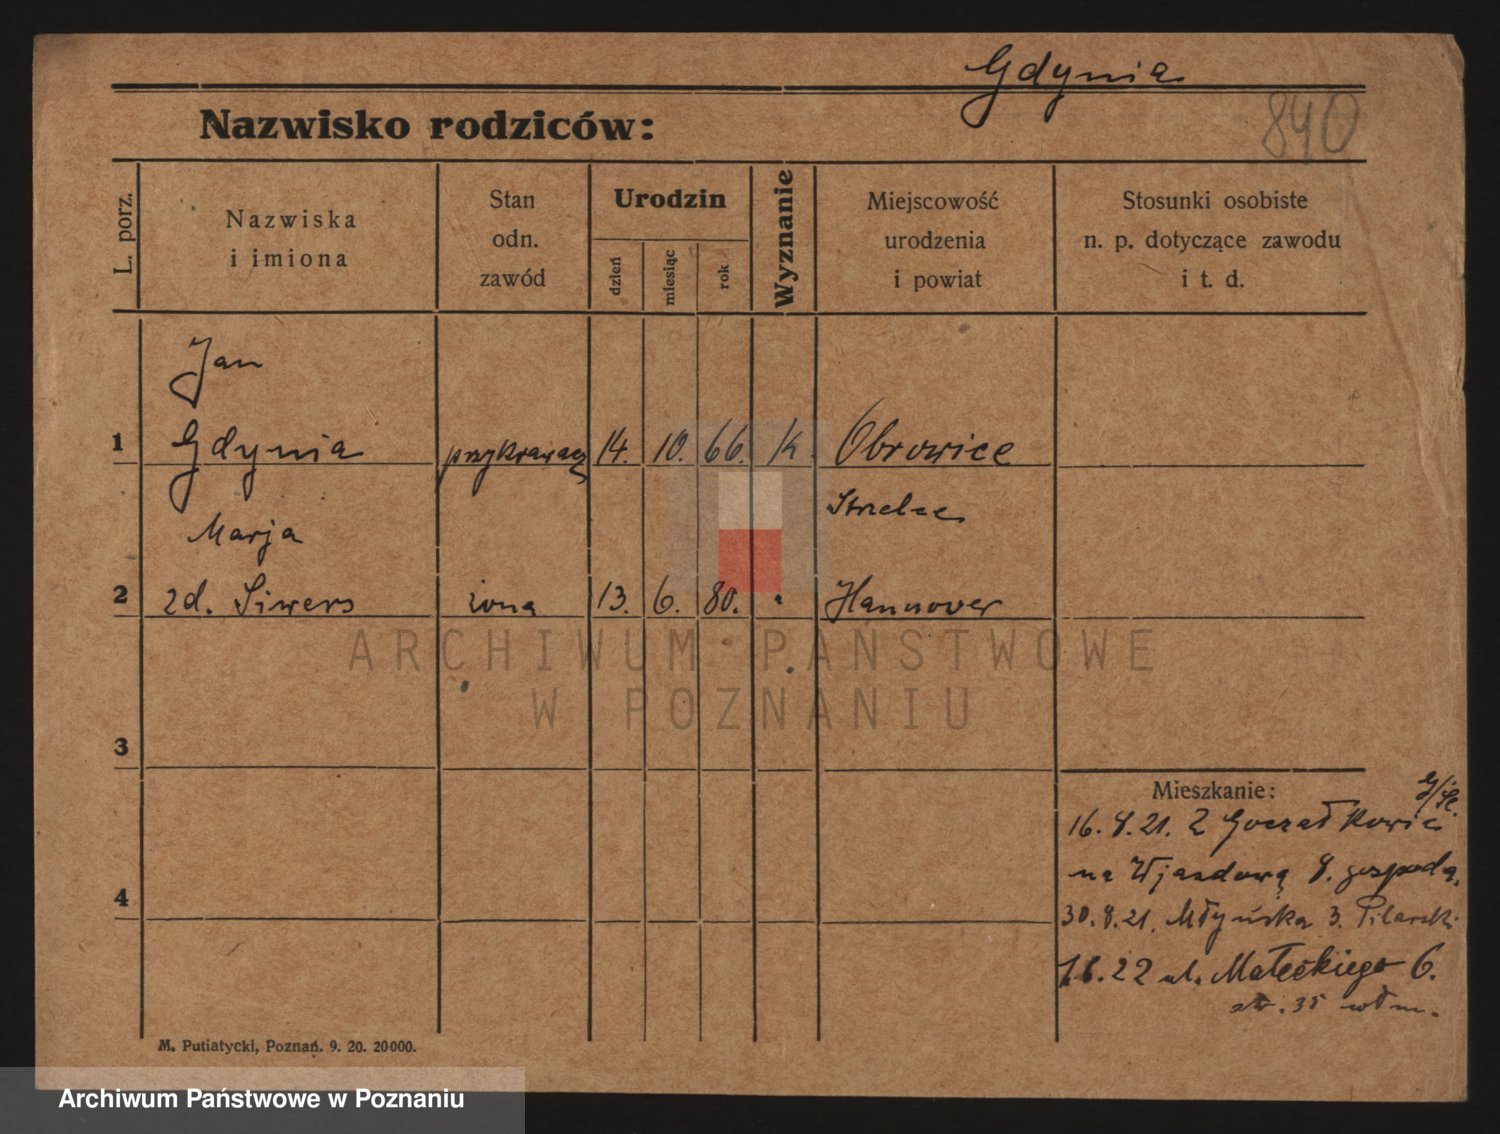 Gdynia
840
Nazwisko rodziców:
L. porz.
Nazwiska
i imiona
Stan
odn.
zawód
Urodzin
dzień
miesiąc
rok
Wyznanie
Miejscowość
urodzenia
i powiat
Stosunki osobiste
n. p. dotyczące zawodu
i t. d.
Jan
1 Gdynia przykrawacz 14. 10. 66. k Obrowice
Strzelce
Marja
2 zd. Siwers żona 13. 6. 80. " Hannover
ARCHIWUM PAŃSTWOWE
W POZNANIU
3
Mieszkanie:
G/Śl.
16. 8. 21. Z Goczałkowic
na Wjazdową 8. gospoda.
4
30. 8. 21. Młyńska 3. Pilarski
1.6.22 ul. Małeckiego 6.
35
M. Putiatycki, Poznań. 9. 20. 20000.
Archiwum Państwowe w Poznaniu